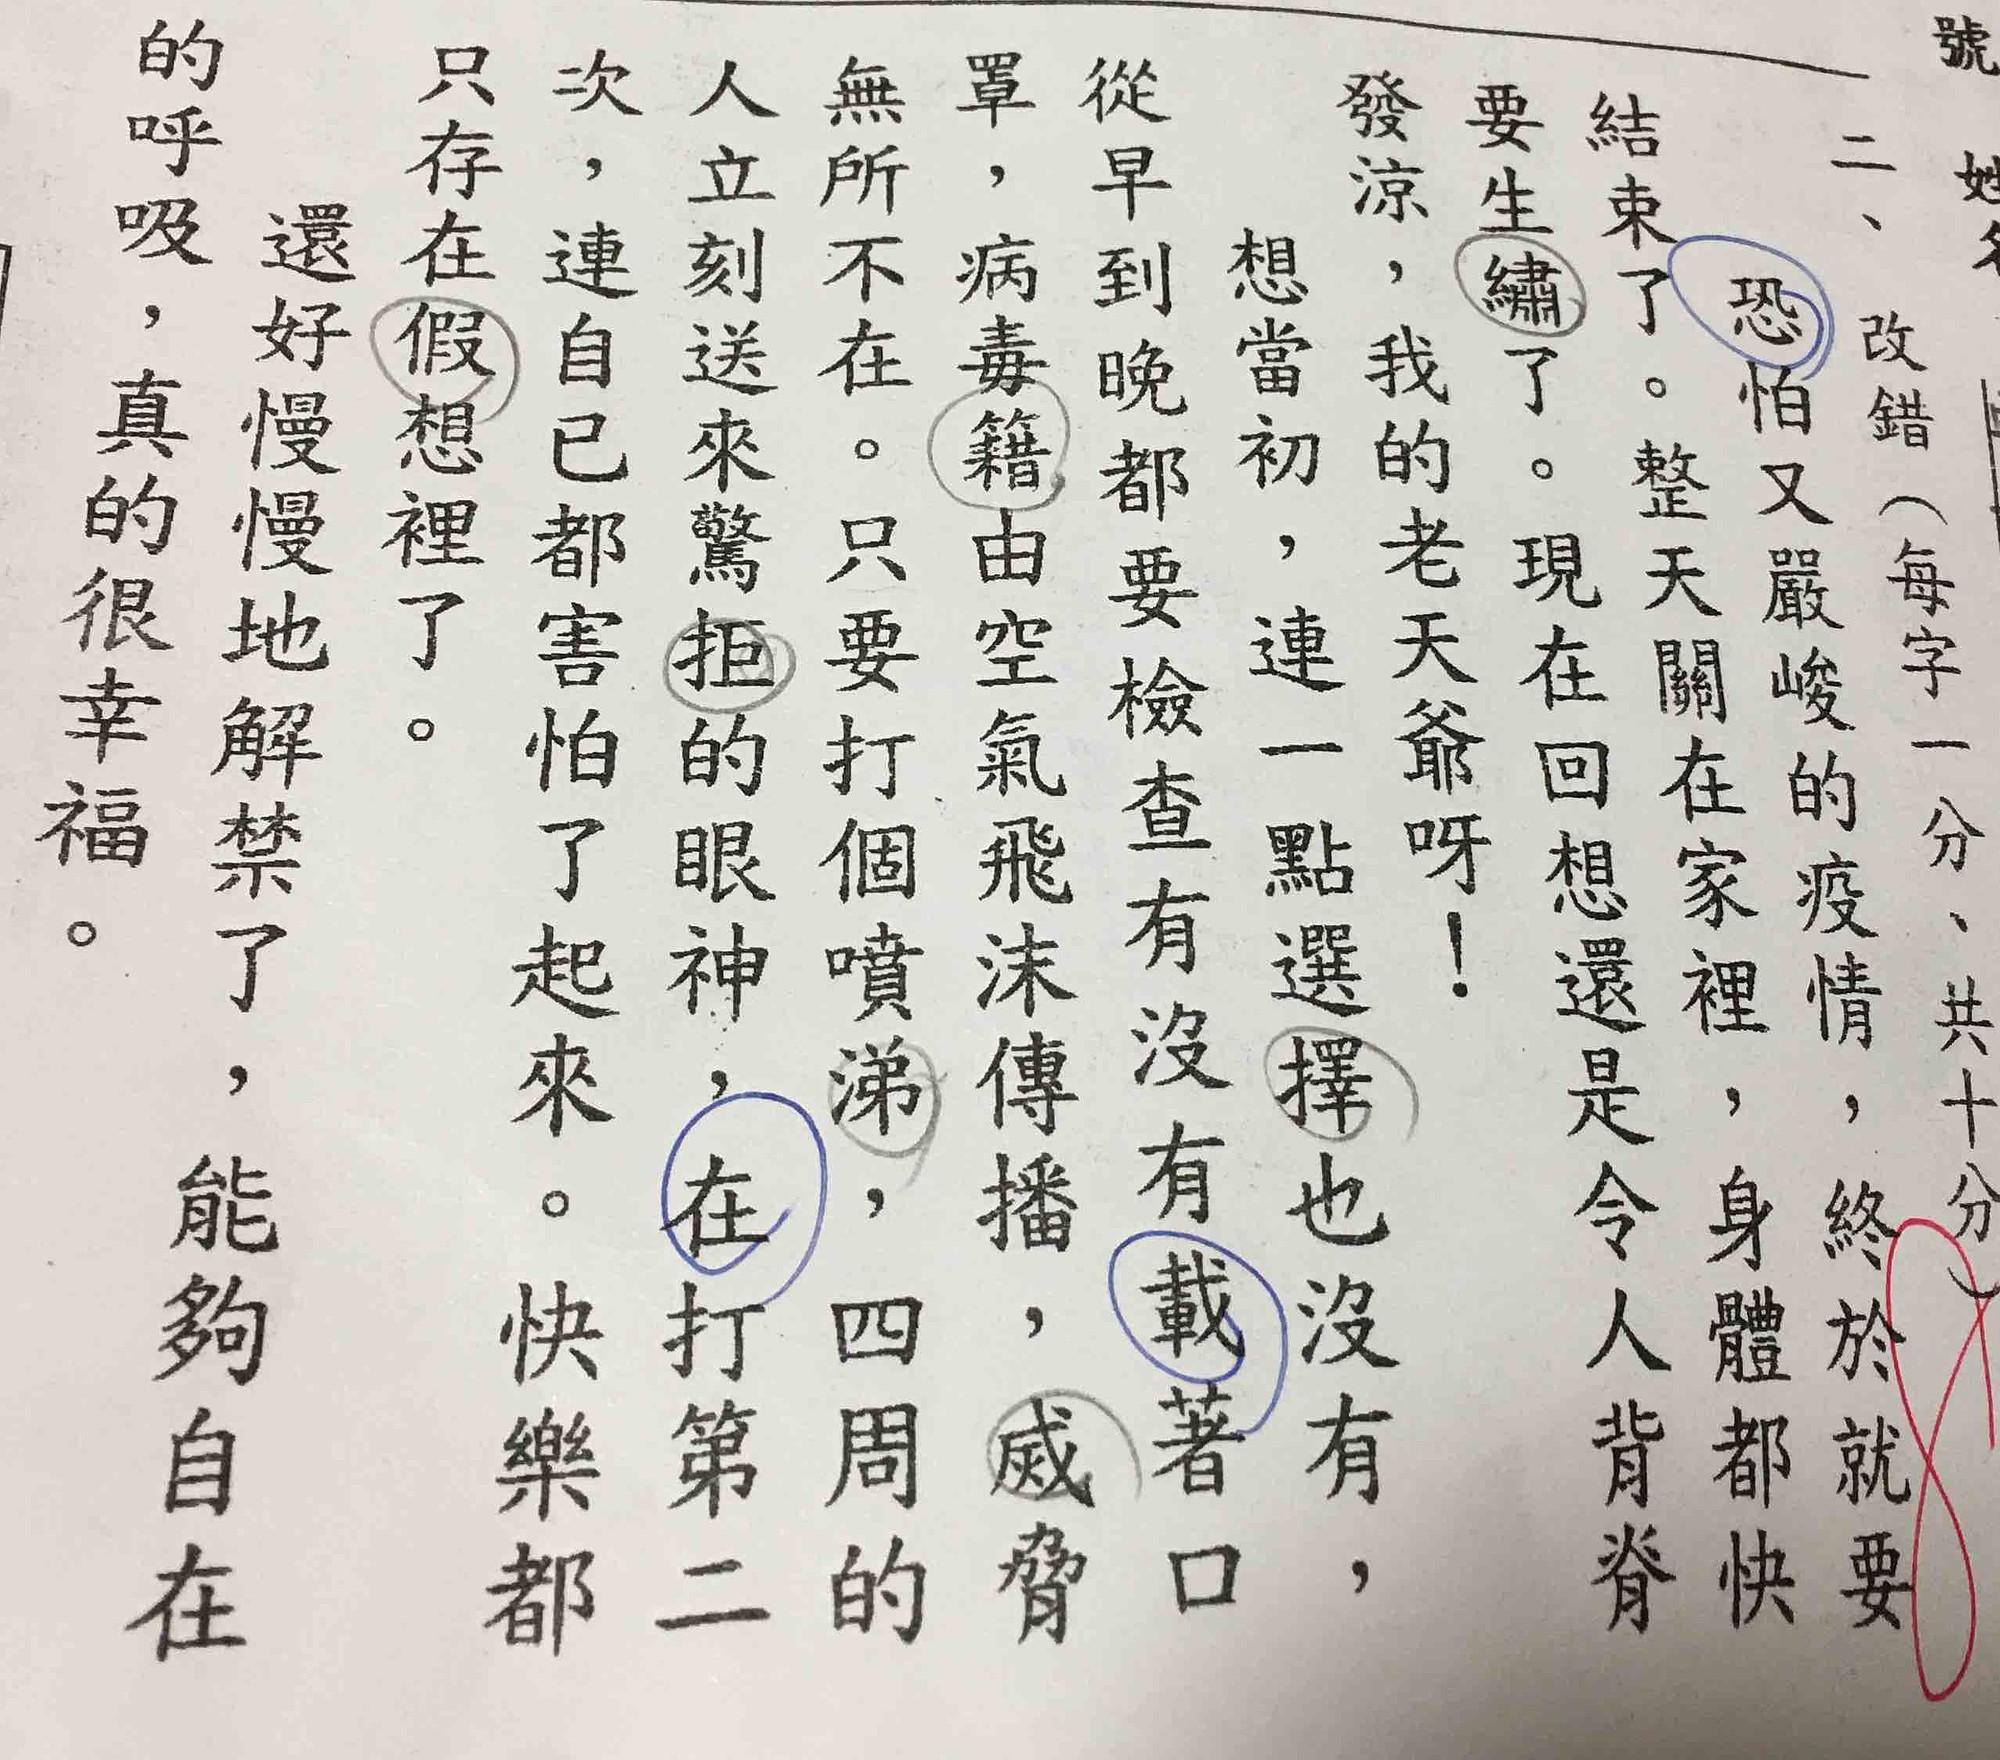 號 姓名
二、改錯（每字一分、共十分）
恐怕又嚴峻的疫情，終於就要
結束了。整天關在家裡，身體都快
要生繡了。現在回想還是令人背脊
發涼，我的老天爺呀！
想當初，連一點選擇也沒有，
從早到晚都要檢查有沒有載著口
罩，病毒籍由空氣飛沫傳播，烕脅
無所不在。只要打個噴涕，四周的
人立刻送來驚拒的眼神，在打第二
次，連自已都害怕了起來。快樂都
只存在假想裡了。
還好慢慢地解禁了，能夠自在
的呼吸，真的很幸福。